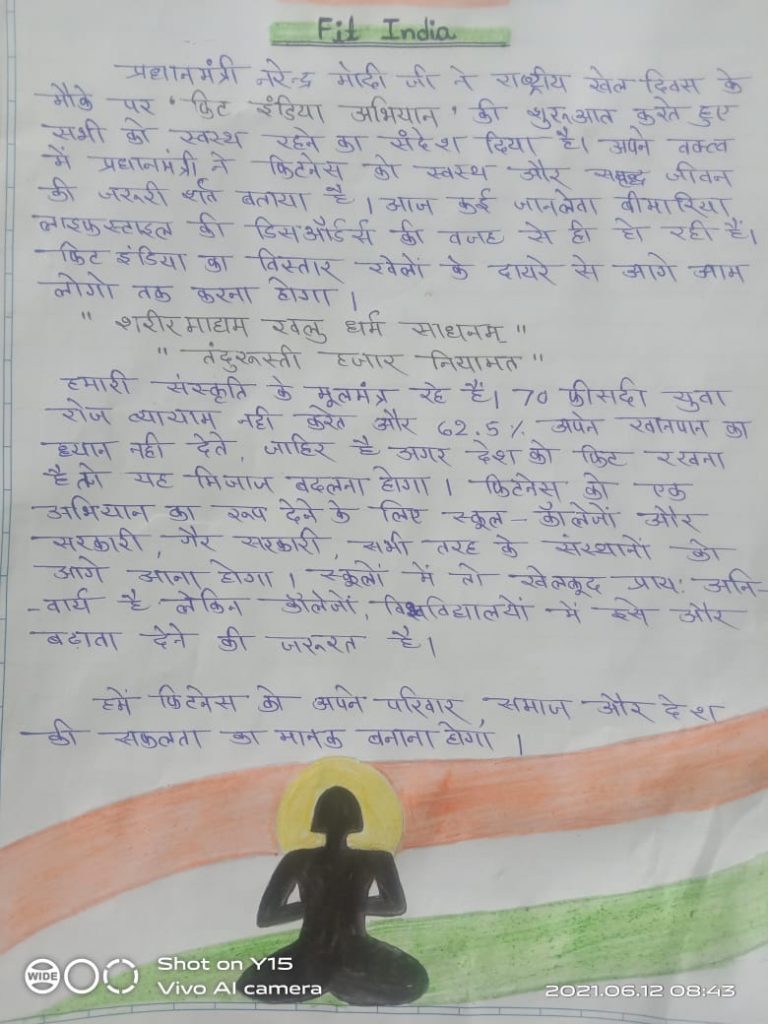 Fit India
प्रधानमंत्री नरेन्द्र मोदी जी ने राष्ट्रीय खेल दिवस के
मौके पर ' फिट इंडिया अभियान ' की शुरूआत करते हुए
सभी को स्वस्थ रहने का संदेश दिया है। अपने वक्तव्य
में प्रधानमंत्री ने फिटनेस को स्वस्थ और समृद्ध जीवन
की जरूरी शर्त बताया है । आज कई जानलेवा बीमारिया
लाइफस्टाइल की डिसऑर्डर्स की वजह से ही हो रही हैं।
फिट इंडिया का विस्तार खेलों के दायरे से आगे आम
लोगो तक करना होगा ।
" शरीरमाद्यम खलु धर्म साधनम् "
" तंदुरूस्ती हजार नियामत "
हमारी संस्कृति के मूलमंत्र रहे हैं। 70 फीसदी युवा
रोज व्यायाम नही करते और 62.5% अपने खानपान का
ध्यान नही देते, जाहिर है अगर देश को फिट रखना
है तो यह मिजाज बदलना होगा । फिटनेस को एक
अभियान का रूप देने के लिए स्कूल - कॉलेजों और
सरकारी, गैर सरकारी, सभी तरह के संस्थानों को
आगे आना होगा । स्कूलों में तो खेलकूद प्राय: अनि-
-वार्य है लेकिन कॉलेजों, विश्वविद्यालयों में इसे और
बढ़ाता देने की जरूरत है।
हमें फिटनेस को अपने परिवार, समाज और देश
की सफलता का मानक बनाना होगा ।
WIDE
Shot on Y15
Vivo AI camera
2021.06.12 08:43